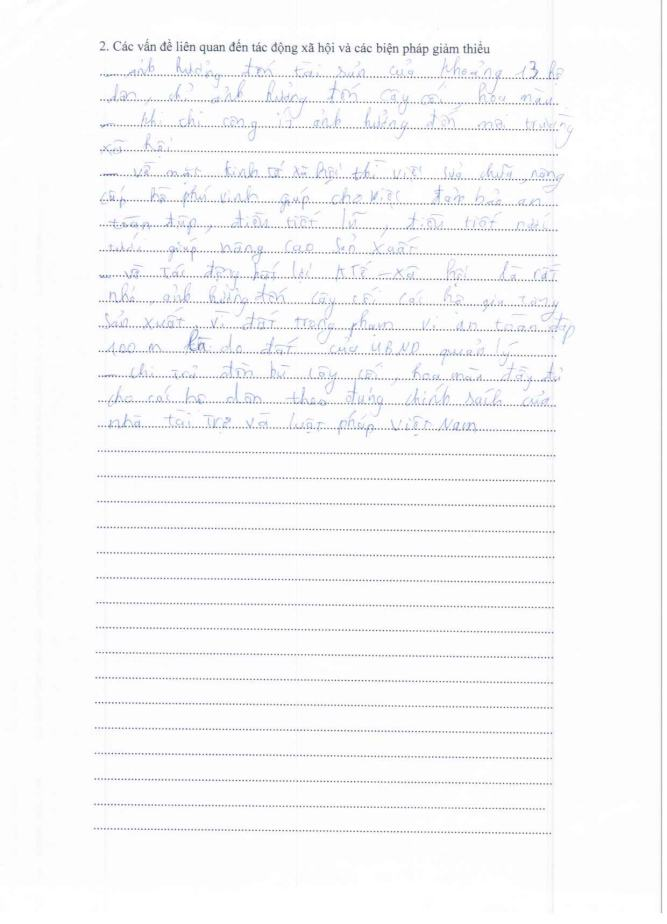 2. Các vấn đề liên quan đến tác động xã hội và các biện pháp giảm thiểu
– ảnh hưởng đến tài sản của khoảng 13 hộ
dân, chỉ ảnh hưởng đến cây cối, hoa màu.
– khi thi công ít ảnh hưởng đến môi trường
xã hội
– về mặt kinh tế xã hội thì việc sửa chữa, nâng
cấp hồ phú vinh giúp cho việc đảm bảo an
toàn đập, điều tiết lũ, điều tiết nước
tưới giúp nâng cao sản xuất
– về tác động bất lợi KTế – xã hội là rất
nhỏ, ảnh hưởng đến cây cối các hộ gia
sản xuất, vì đất trong phạm vi an toàn đập
100 m là do đất của UBND quản lý
– chi trả đền bù cây cối, hoa màu đầy đủ
cho các hộ dân theo đúng chính sách của
nhà tài trợ và luật pháp Việt Nam